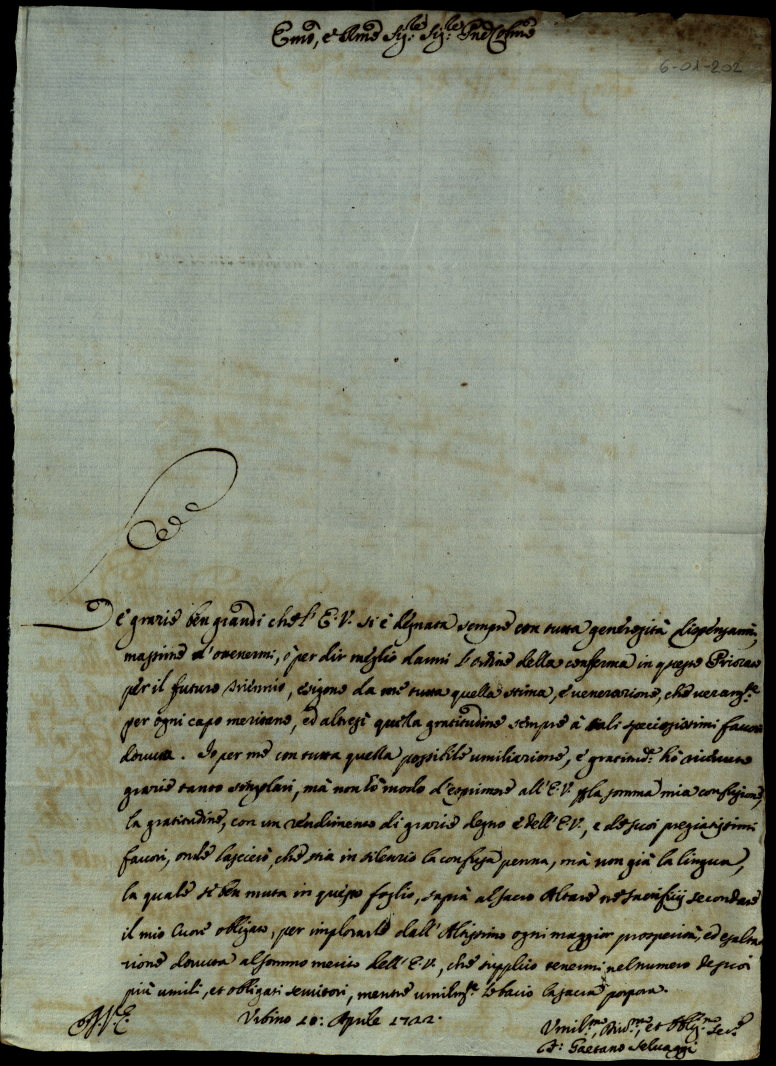 Emo, e Rmo Sig:re Sig:re Pne Colmo
6-01-202
Le grazie ben grandi che l'E.V. si è degnata sempre con tutta generosità dispensarmi,
massime d'ottenermi, ò per dir meglio darmi l'ordine della conferma in questo Priorato
per il futuro triennio, esigono da me tutta quella stima, e venerazione, che veram.te
per ogni capo meritano, ed altresi quella gratitudine sempre à tali speciosissimi favori
dovuta. Io per me con tutta quella possibile umiliazione, e gratitud.e hò ricevute
grazie tanto singolari, mà non hò modo d'esprimere all'E.V. p la somma mia confusione,
la gratitudine, con un rendimento di grazie degno e dell'E.V., e de suoi pregiatissimi
favori, onde lascierò, che stia in silenzio la confusa penna, mà non già la lingua,
la quale si ben muta in questo foglio, saprà al sacro Altare ne sacrificij secondare
il mio Cuore obligato, per implorarle dall'Altissimo ogni maggior prosperità, ed esalta
zione dovuta al sommo merito dell'E.V., che supplico tenermi nel numero de suoi
più umili, et obligati servitori, mentre umilm.te le bacio la sacra porpora.
Di V.E. Urbino 10: Aprile 1722.
Umil.mo, Div.mo, et Obblig.mo Se.re
D: Gaetano Selvaggi